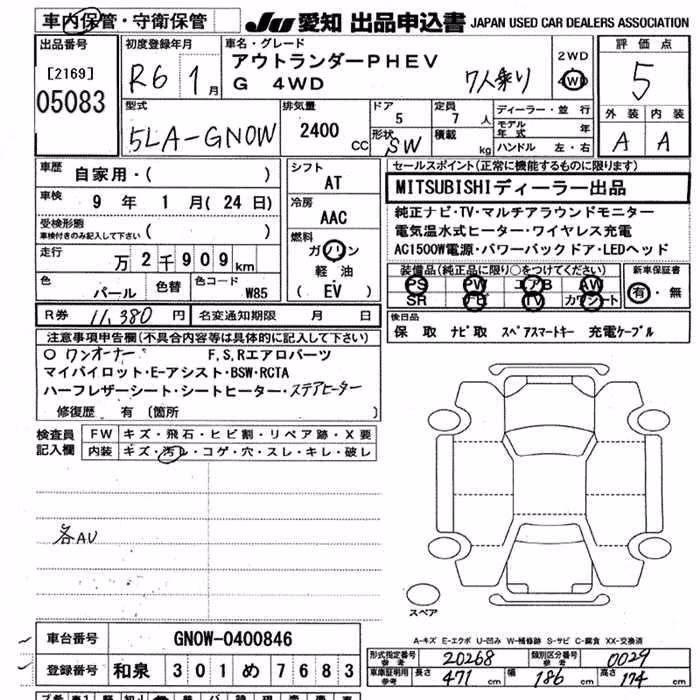 車内保管・守衛保管 JU 愛知 出品申込書 JAPAN USED CAR DEALERS ASSOCIATION
出品番号 初度登録年月 車名・グレード 2WD 評価点
[2169] R6 1月 アウトランダーPHEV
05083 G 4WD 7人乗り 4WD 5
型式 排気量 ドア 定員 ディーラー・並行 外装 内装
5LA-GN0W 2400 CC 5 7人 モデル年式 年 A A
形状 SW 積載 kg ハンドル 左・右
車歴 自家用・( ) シフト セールスポイント(正常に機能するものに限ります)
AT MITSUBISHIディーラー出品
車検 9年 1月(24日) 冷房 純正ナビ・TV・マルチアラウンドモニター
受検形態 AAC 電気温水式ヒーター・ワイヤレス充電
車検付きのみ記入して下さい ( ) 燃料 AC1500W電源・パワーバックドア・LEDヘッド
走行 万2千909km ガソリン 装備品(純正品に限り○をつけてください) 新車保証書
軽油 PS PW エアB AW 有・無
色 パール 色替 色コード W85 (EV) SR ナビ TV カワシート
R券 11,380円 名変通知期限 月 日 検日品
注意事項申告欄(不具合内容等は具体的に記入して下さい) 保 取 ナビ取 スペアスマートキー 充電ケーブル
○ワンオーナー F,S,Rエアロパーツ
マイパイロット・E-アシスト・BSW・RCTA
ハーフレザーシート・シートヒーター・ステアヒーター
修復歴 有 (箇所 )
検査員 FW キズ・飛石・ヒビ割・リペア跡・X要
記入欄 内装 キズ・汚レ・コゲ・穴・スレ・キレ・破レ
各AU
スペア
A-キズ E-エクボ U-凹み W-補修跡 S-サビ C-腐食 XX-交換済
車台番号 GN0W-0400846 形式指定番号 参考 20268 類別区分番号 参考 0029
登録番号 和泉 301 め 7683 車庫証明用 参考 長さ 471cm 幅 186cm 高さ 174cm